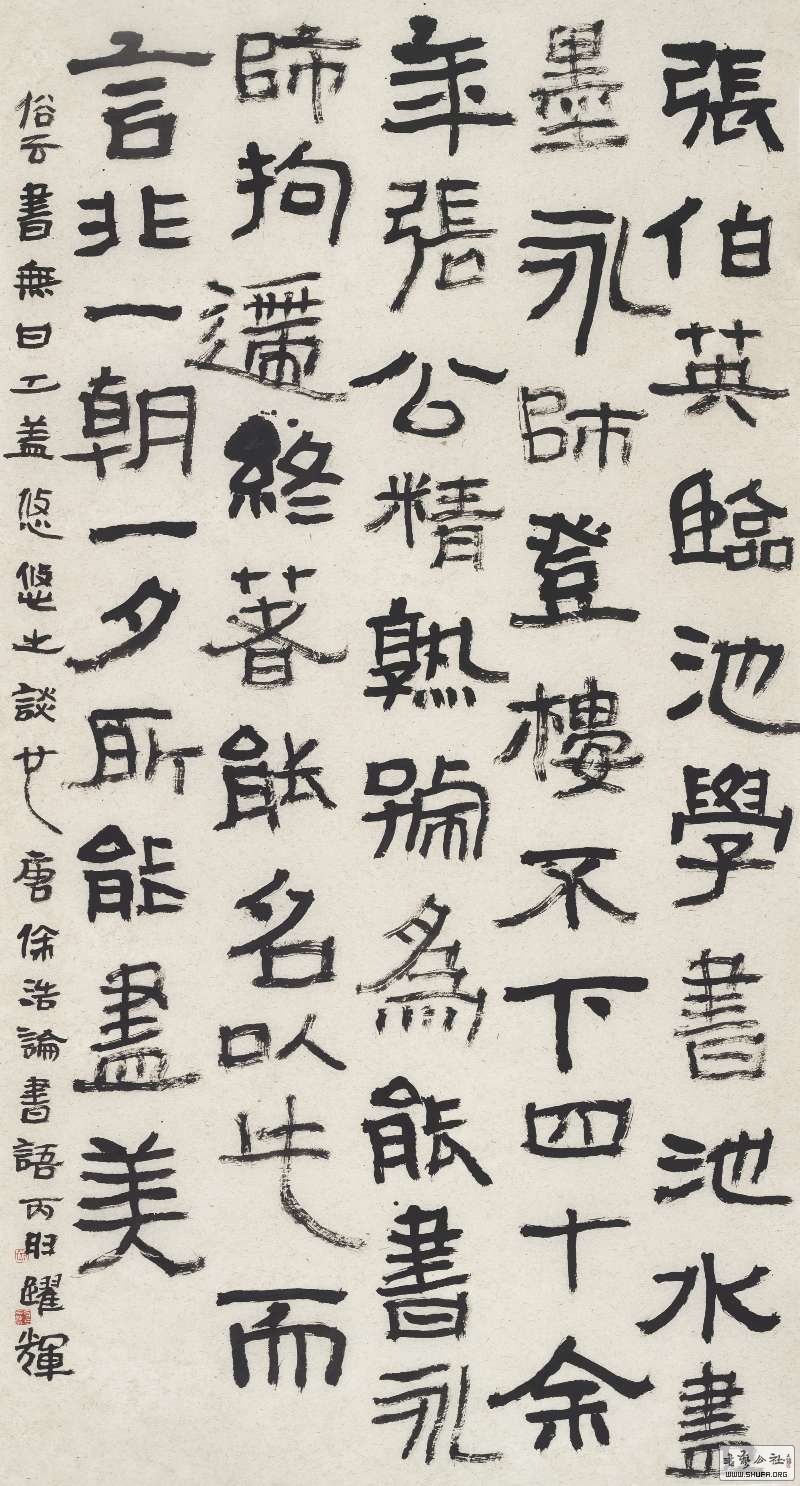 張伯英臨池學書池水盡
墨永師登樓不下四十余
年張公精熟號為能書永
師拘遰終著能名以此而
言非一朝一夕所能盡美
俗云書無日工蓋悠悠之談也唐徐浩論書語丙申躍輝
書法公社
WWW.SHUFA.ORG